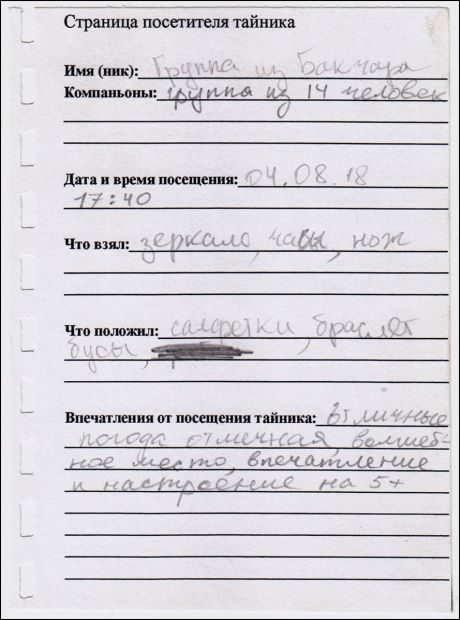 Страница посетителя тайника
Имя (ник): Группа из Бакчара
Компаньоны: группа из 14 человек
Дата и время посещения: 04.08.18
17:40
Что взял: зеркало, часы, нож
Что положил: салфетки, браслет
бусы,
Впечатления от посещения тайника: отличные
погода отличная, волшеб-
ное место, впечатление
и настроение на 5+